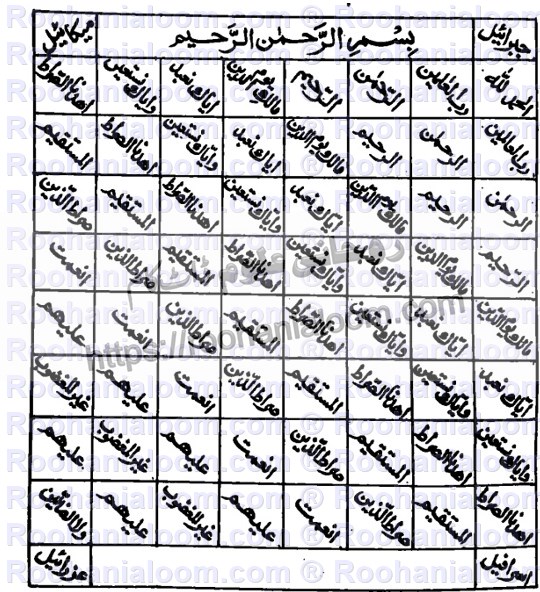 جبرائیل بِسْمِ الرَّحْمٰنِ الرَّحِیْمِ میکائیل
الحمد للہ رب العلمین الرحمٰن الرحیم مالک یوم الدین ایاک نعبد وایاک نستعین اھدنا الصراط
رب العلمین الرحمن الرحیم مالک یوم الدین ایاک نعبد وایاک نستعین اھدنا الصراط المستقیم
الرحمن الرحیم مالک یوم الدین ایاک نعبد وایاک نستعین اھدنا الصراط المستقیم صراط الذین
الرحیم مالک یوم الدین ایاک نعبد وایاک نستعین اھدنا الصراط المستقیم صراط الذین انعمت
مالک یوم الدین ایاک نعبد وایاک نستعین اھدنا الصراط المستقیم صراط الذین انعمت علیھم
ایاک نعبد وایاک نستعین اھدنا الصراط المستقیم صراط الذین انعمت علیھم غیر المغضوب
وایاک نستعین اھدنا الصراط المستقیم صراط الذین انعمت علیھم غیر المغضوب علیھم
اھدنا الصراط المستقیم صراط الذین انعمت علیھم غیر المغضوب علیھم ولا الضالین
اسرافیل عزرائیل
روحانی علوم ڈاٹ کام
https://roohanialoom.com
Roohanialoom.com ® Roohanialoom.com ® Roohanialoom.com